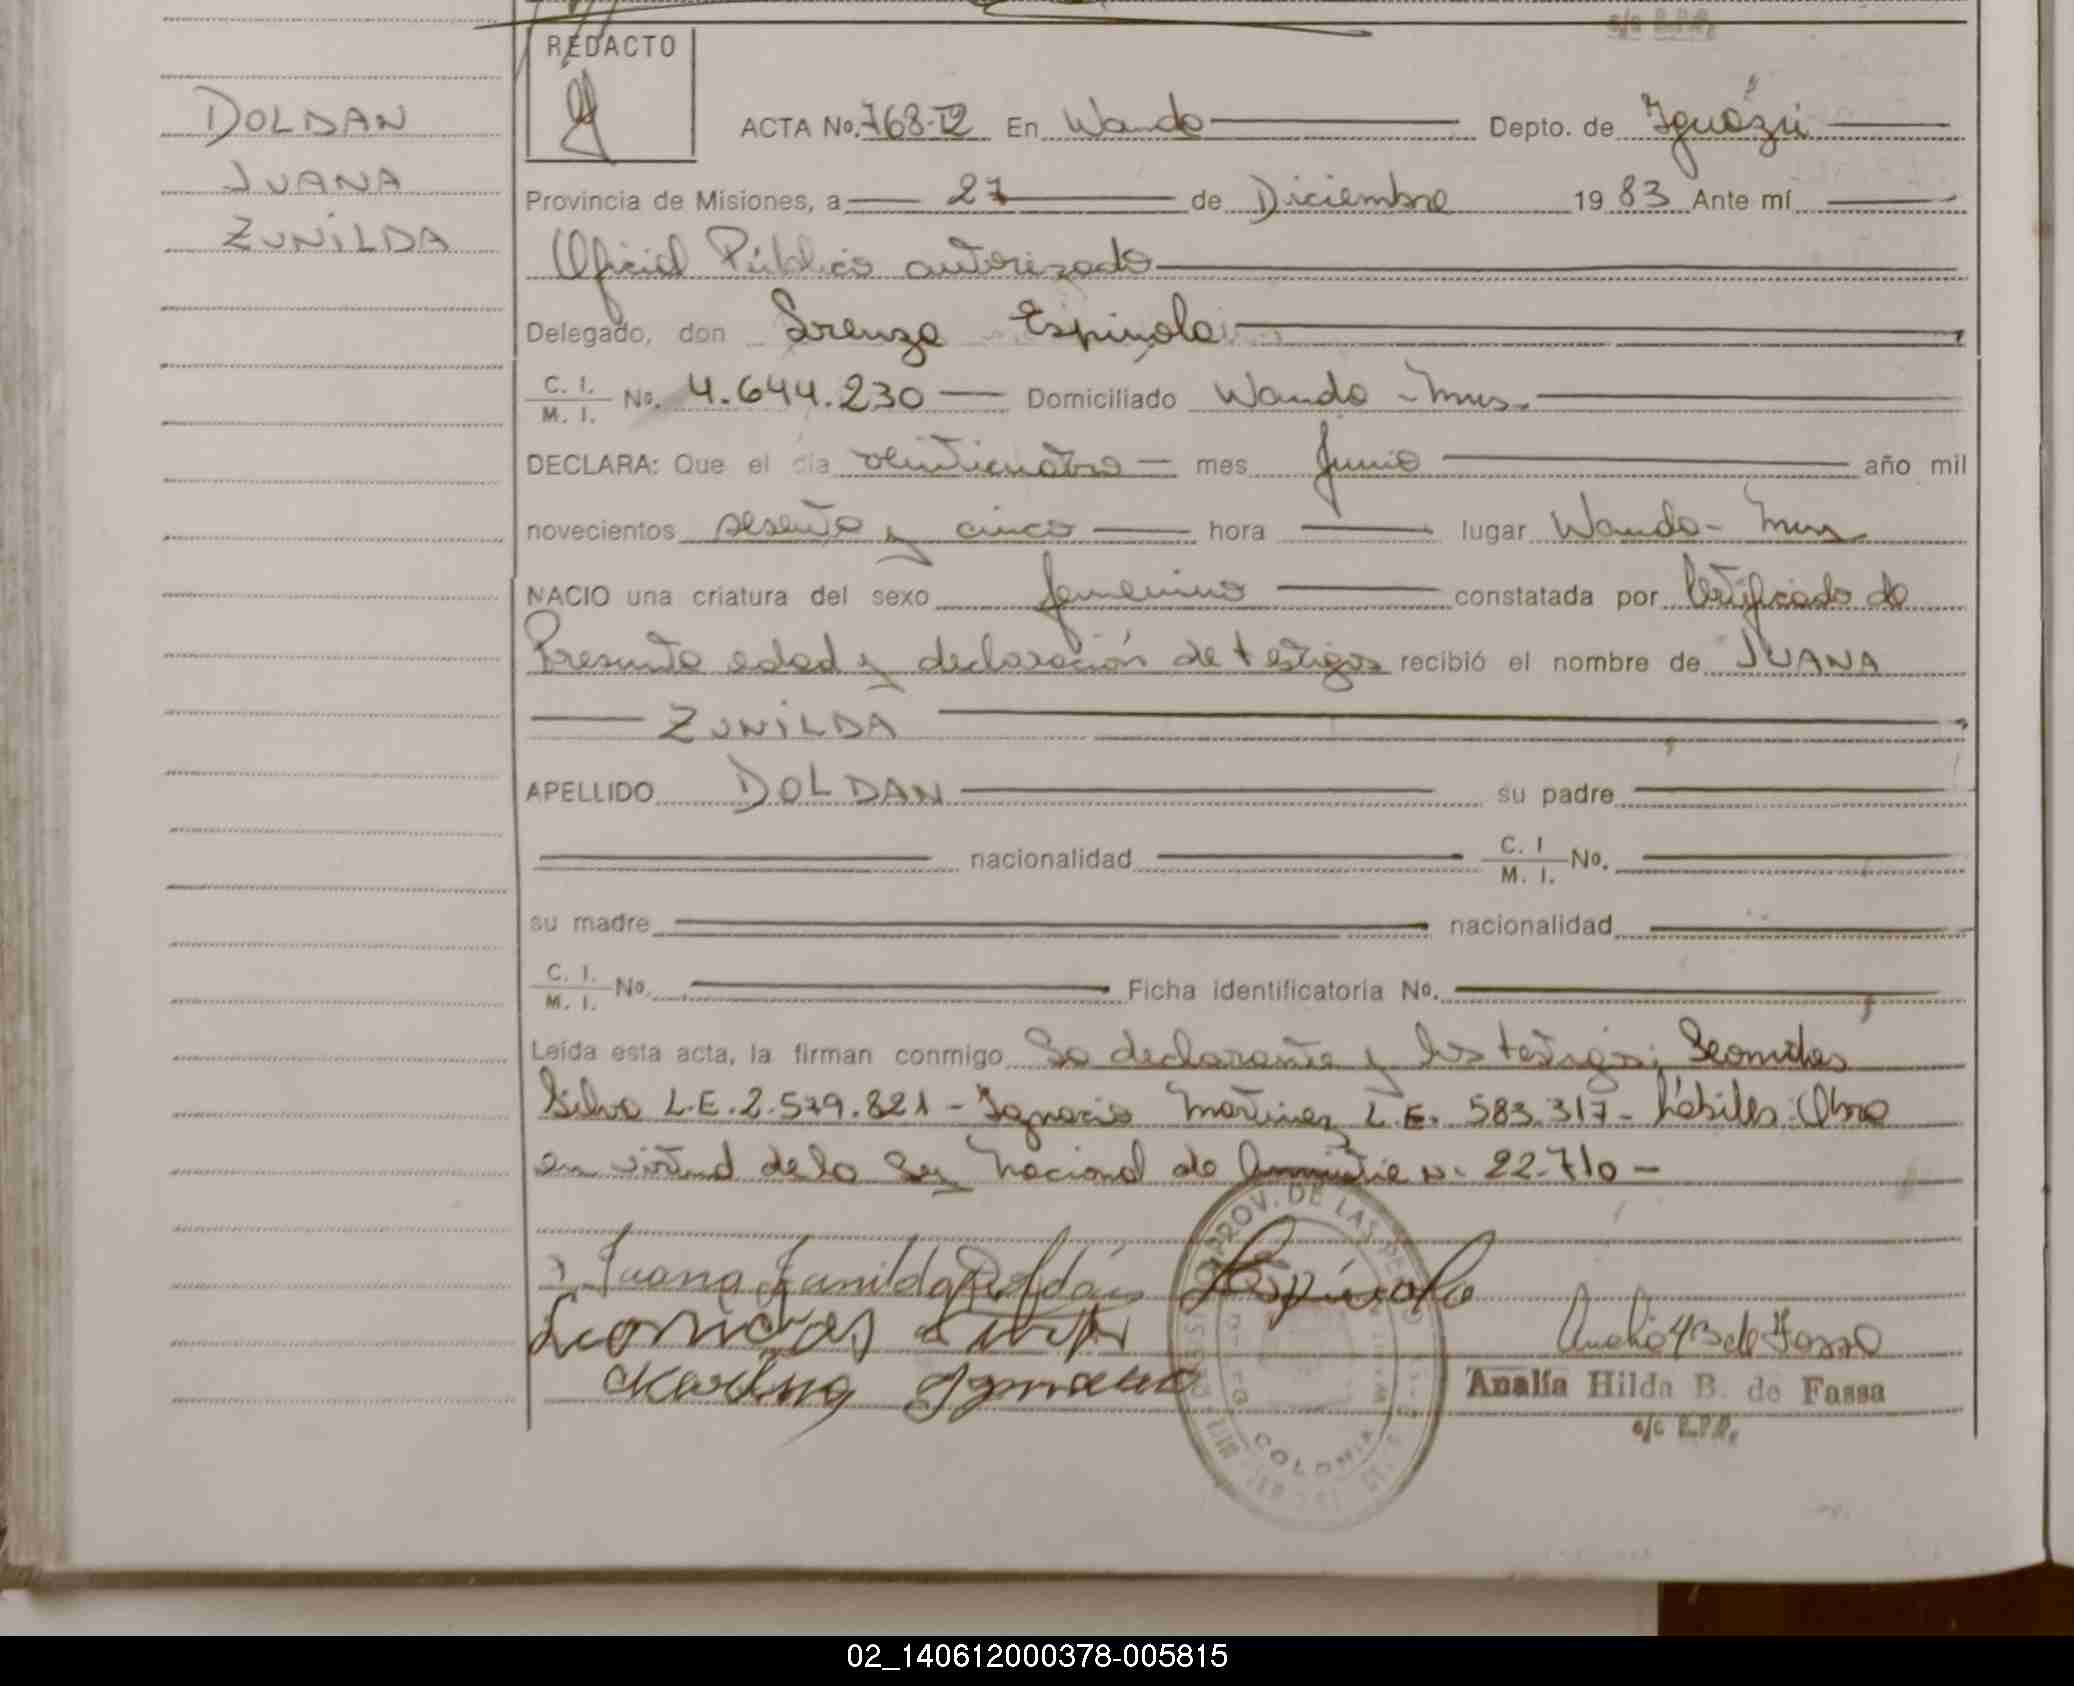 REDACTO
DOLDAN
JUANA
ZUNILDA
ACTA No. 768-T2 En Wanda Depto. de Iguazú
Provincia de Misiones, a 27 de Diciembre 19 83 Ante mí
Oficial Público autorizado
Delegado, don Lorenza Espinola
C. I. / M. I. No. 4.644.230 Domiciliado Wanda - Mnes.
DECLARA: Que el día veinticuatro mes Junio año mil
novecientos sesenta y cinco hora lugar Wanda - Mnes
NACIO una criatura del sexo femenino constatada por Certificado de
Presunta edad y declaración de testigos recibió el nombre de JUANA
ZUNILDA
APELLIDO DOLDAN su padre
nacionalidad C. I / M. I. No.
su madre nacionalidad
C. I. / M. I. No. Ficha identificatoria No.
Leída esta acta, la firman conmigo La declarante y los testigos: Leonidas
Silva L.E. 2.579.821 - Ignacio Martinez L.E. 583.317 - hábiles. Obra
en virtud de la Ley Nacional de Amnistie N. 22.710 -
Juana Zunilda Doldán Espínola
Leonidas Silva
Martinez Ignacio
Analía Hilda B. de Fassa
a/c R.P.P.
PROV. DE LAS PERS
COLONIA
02_140612000378-005815